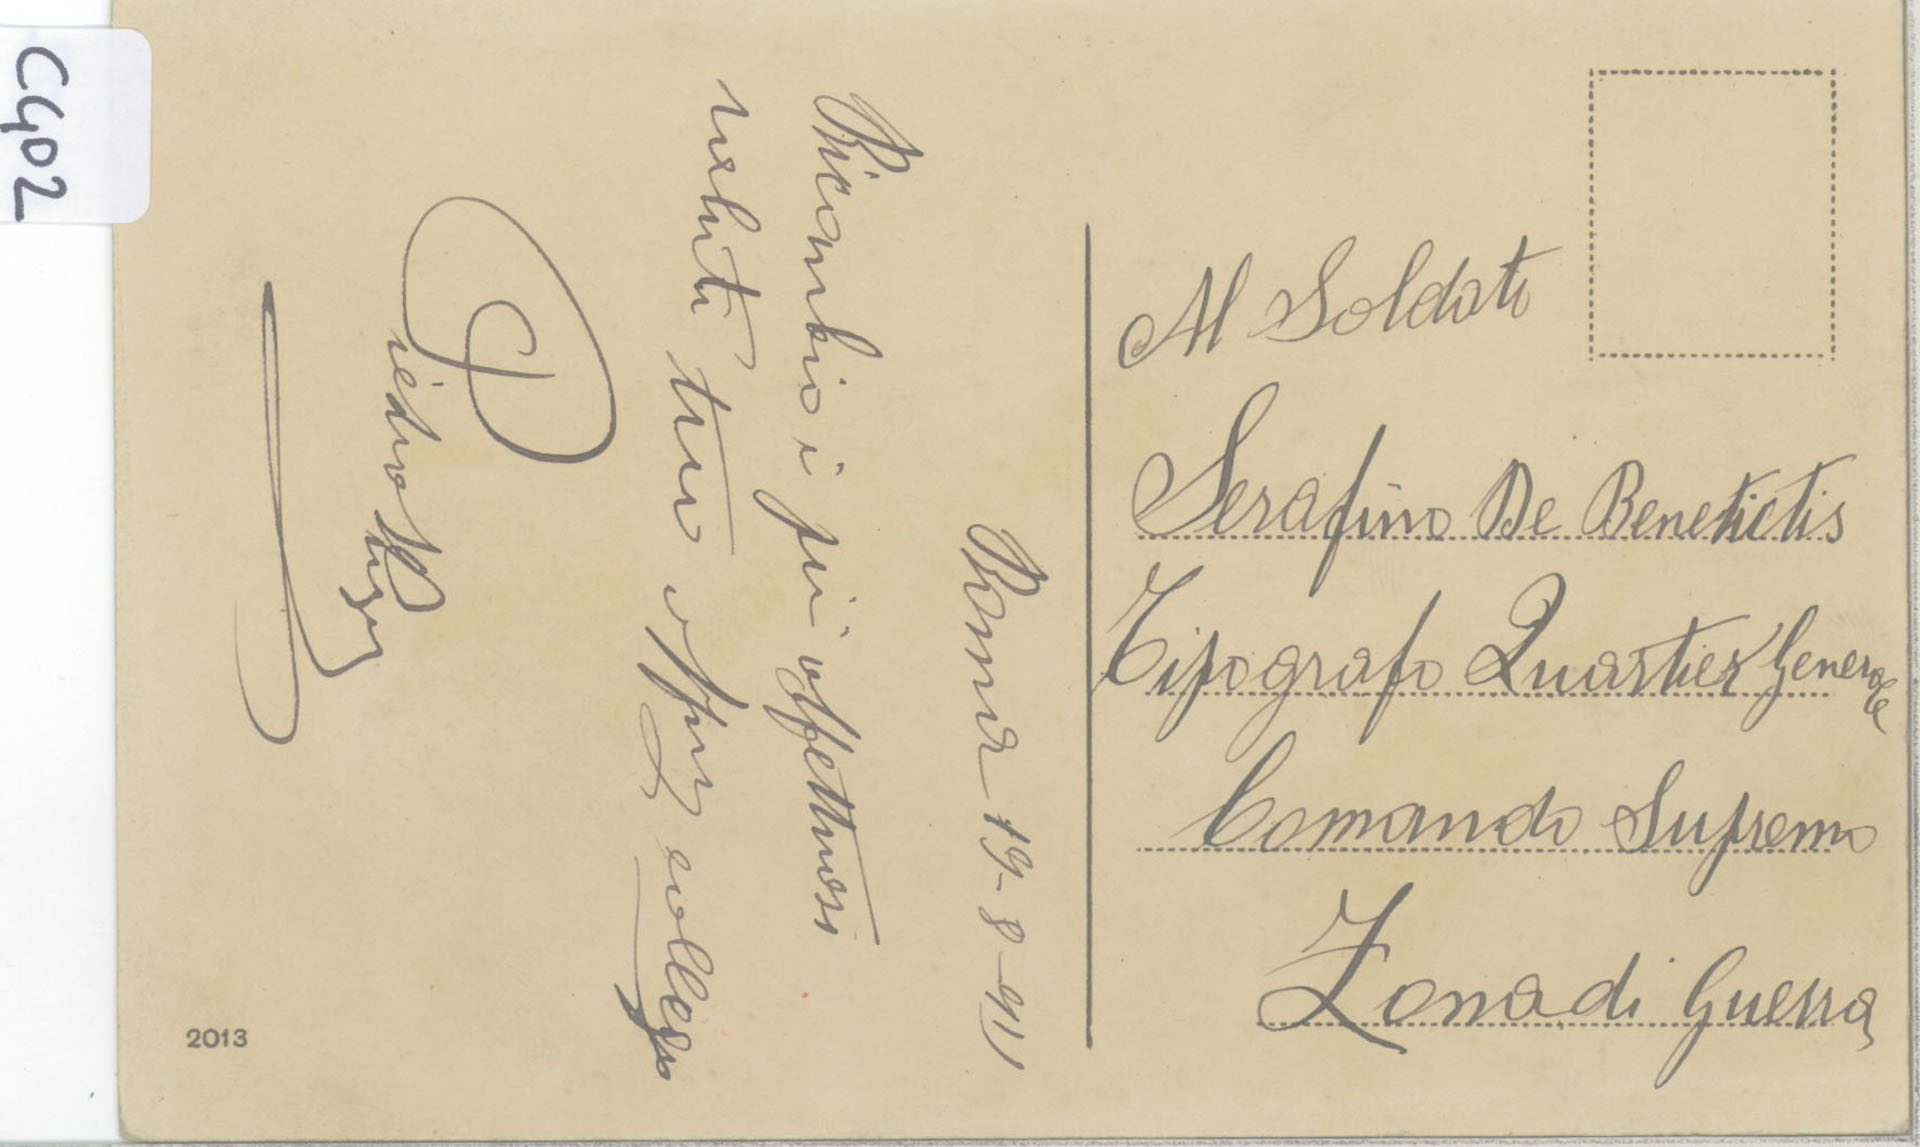 C402
Al Soldato
Serafino De Benedictis
Tipografo Quartier Generale
Comando Supremo
Zona di Guerra
Roma 19-8-917
Ricambio i più affettuosi
saluti tuo collega
Pietro
2013